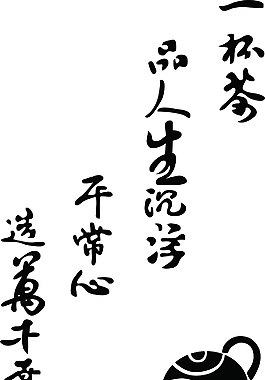 一杯茶
品人生沉浮
平常心
造萬千